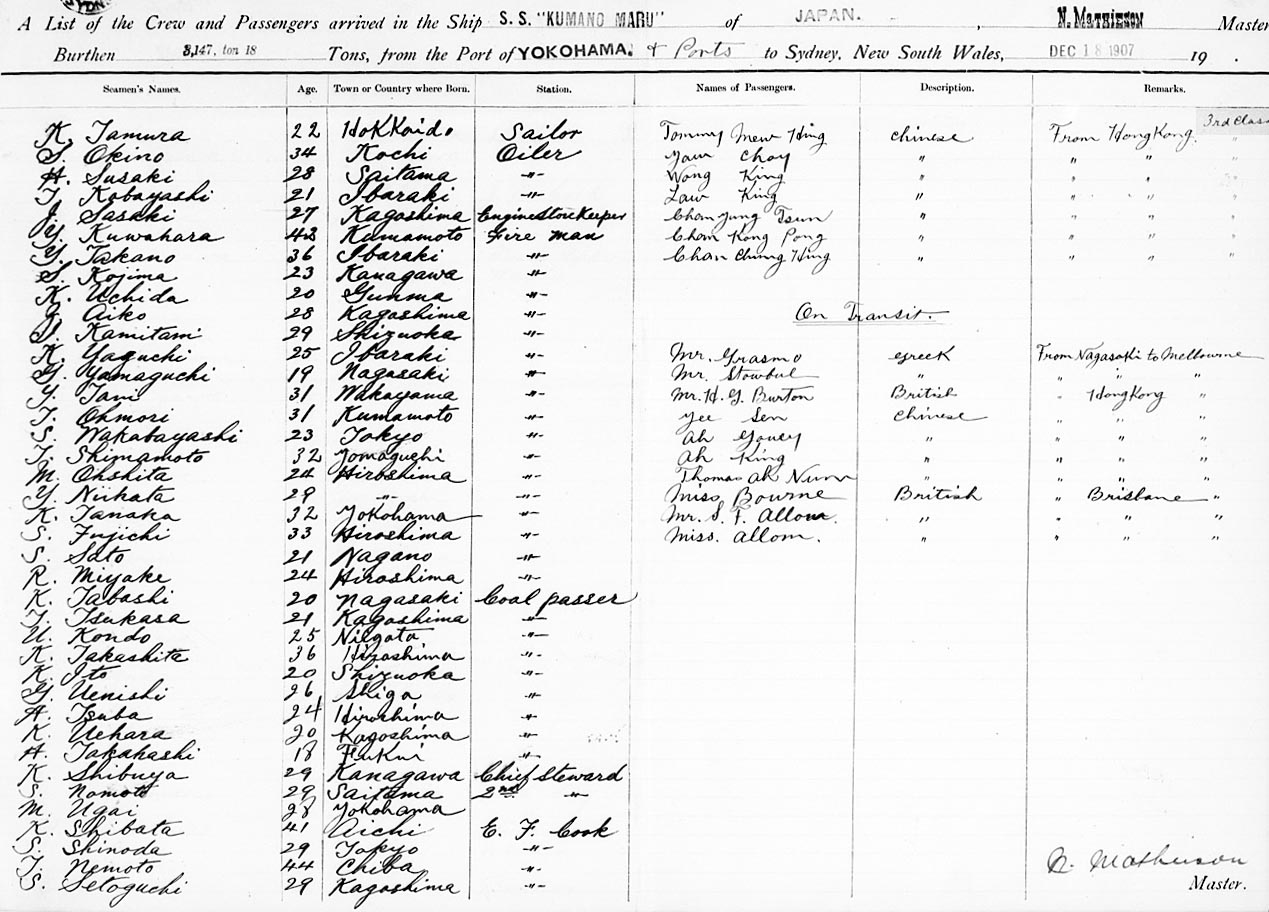 A List of the Crew and Passengers arrived in the Ship S. S. "KUMANO MARU" of JAPAN. , N. MATHIESON Master
Burthen 3,147, ton 18 Tons, from the Port of YOKOHAMA. & Ports to Sydney, New South Wales, DEC 18 1907 19 .
Seamen's Names. Age. Town or Country where Born. Station. Names of Passengers. Description. Remarks.
3rd Class
K. Tamura 22 Hokkaido Sailor Tommy Mew Hing Chinese From Hong Kong. "
S. Okino 34 Kochi Oiler Yow Choy " " " "
H. Susaki 28 Saitama -"- Wong King " " " "
T. Kobayashi 21 Ibaraki -"- Law King " " " "
J. Sasaki 27 Kagoshima Engine Store Keeper Chan Yung Tsun " " " "
Y. Kuwahara 42 Kumamoto Fire man Chan Kong Pong " " " "
Y. Takano 36 Ibaraki -"- Chan Ching Hing " " " "
S. Kojima 23 Kanagawa -"-
K. Uchida 20 Gunma -"-
Aiko 28 Kagoshima -"- On Transit.
Kamitani 29 Shizuoka -"-
K. Yaguchi 25 Ibaraki -"- Mr. Grasmo Greek From Nagasaki to Melbourne
G. Yamaguchi 19 Nagasaki -"- Mr. Stowbul " " " "
Y. Tani 31 Wakayama -"- Mr. H. G. Burton British " Hong Kong "
T. Ohmori 31 Kumamoto -"- Yee Sen Chinese " " "
S. Wakabayashi 23 Tokyo -"- Ah Goney " " " "
T. Shimamoto 32 Yomaguchi -"- Ah King " " " "
M. Ohshita 24 Hiroshima -"- Thomas Ah Num " " " "
Y. Niikata 29 -"- -"- Miss Bourne British " Brisbane "
K. Tanaka 32 Yokohama -"- Mr. S. F. Allom. " " " "
S. Fujichi 33 Hiroshima -"- Miss. Allom. " " " "
S. Sato 21 Nagano -"-
R. Miyake 24 Hiroshima -"-
K. Tabashi 20 Nagasaki Coal passer
T. Tsukasa 21 Kagoshima -"-
U. Kondo 25 Niigata -"-
K. Takashita 36 Hiroshima -"-
K. Ito 20 Shizuoka -"-
G. Uenishi 26 Shiga -"-
A. Tsuba 24 Hiroshima -"-
K. Uehara 20 Kagoshima -"-
H. Takahashi 18 Fukui -"-
K. Shibuya 29 Kanagawa Chief Steward
S. Nomoto 29 Saitama 2nd -"-
M. Ugai 28 Yokohama
K. Shibata 41 Aichi E. F. Cook
S. Shinoda 29 Tokyo -"-
T. Nemoto 44 Chiba -"- N. Mathieson
S. Setoguchi 29 Kagoshima -"- Master.